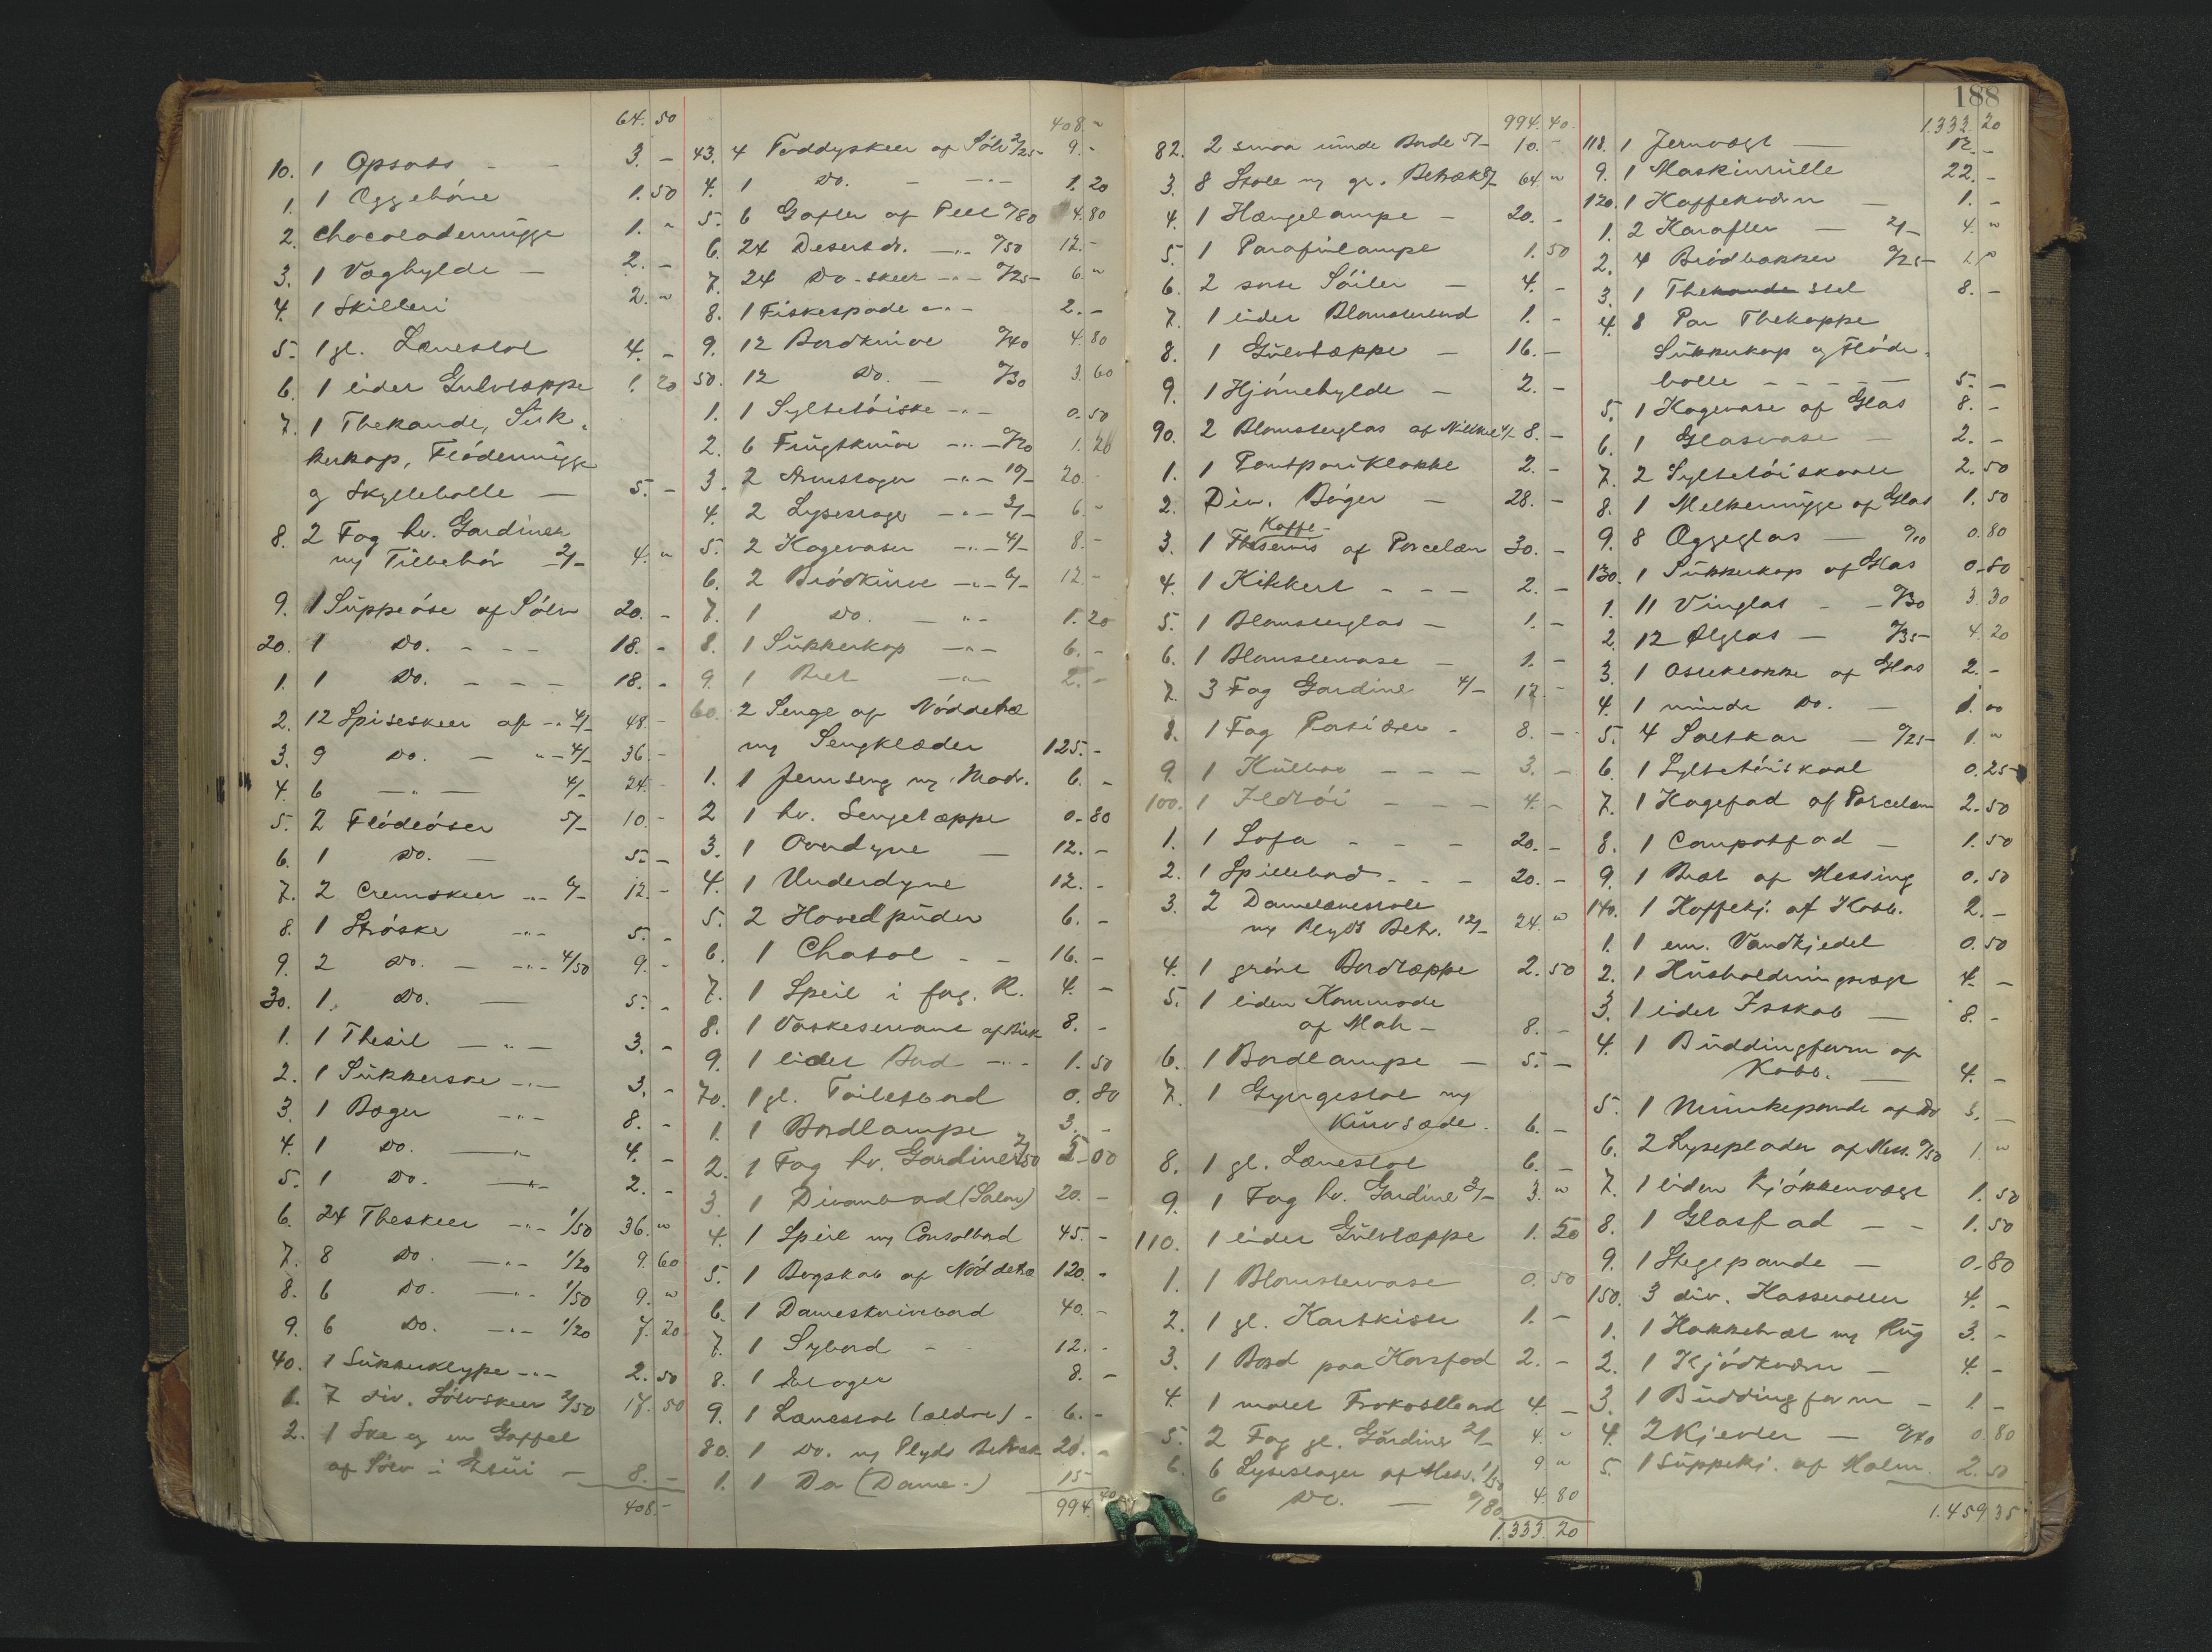 64. 50
10. 1 Opsats - - 3. -
1. 1 Æggehöne 1. 50
2. Chocolademugge 1. "
3. 1 Væghylde - 2. -
4. 1 Skilleri 2. "
5. 1 gl. Lænestol 4. -
6. 1 lidet Gulvtæppe 1. 20
7. 1 Thekande, Suk-
kerkop, Flödemugge
og Skyllebolle - 5. -
8. 2 Fag hv. Gardiner
m/ Tilbehör 2/- 4. "
9. 1 Suppeöse af Sölv 20. -
20. 1 Do. - - - 18. -
1. 1 Do. - - - 18. -
2. 12 Spiseskeer af -"- 4/- 48. -
3. 9 Do. - "- 4/- 36. -
4. 6 -"- - 4/- 24. -
5. 2 Flödeöser 5/- 10. -
6. 1 Do. - 5. -
7. 2 Cremskeer -"- 6/- 12. -
8. 1 Ströske -"- 5. -
9. 2 Do. - -"- 4/50 9. -
30. 1. Do. - 5. -
1. 1 Thesil -"- 3. -
2. 1 Sukkerske -"- 3. -
3. 1 Bæger -"- 8. -
4. 1 Do. -"- 4. -
5. 1 Do. -"- 2. -
6. 24 Theskeer -"- 1/50 36. "
7. 8 Do. -"- 1/20 9. 60
8. 6 Do. -"- 1/50 9. "
9. 6 Do. -"- 1/20 7. 20
40. 1 Sukkerklype -"- 2. 50
1. 7 div. Sölvskeer 2/50 17. 50
2. 1 Ske og en Gaffel
af Sölv i Etui - 8. -
408. -
408. "
43. 4 Toddyskeer af Sölv 2/25 9. -
4. 1 Do. - -"- 1. 20
5. 6 Gafler af Plet 0/80 4. 80
6. 24 Desert do. -"- 0/50 12. -
7. 24 Do-skeer -"- 0/25 6. "
8. 1 Fiskespade -"- 2. -
9. 12 Bordknive 0/40 4. 80
50. 12 Do. - 0/30 3. 60
1. 1 Syltetöiske -"- 0. 50
2. 6 Frugtknive -"- 0/20 1. 20
3. 2 Armstager -"- 10/- 20. -
4. 2 Lysestager -"- 3/- 6. -
5. 2 Kagevaser -"- 4/- 8. -
6. 2 Brödkurve -"- 6/- 12. -
7. 1 Do. -"- 1. 20
8. 1 Sukkerkop -"- 6. -
9. 1 Bret -"- 2. -
60. 2 Senge af Nöddetræ
m/ Sengklæder 125. -
1. 1 Jernseng m/ Madr. 6. -
2 1 hv. Sengetæppe 0. 80
3. 1 Overdyne - 12. -
4. 1 Underdyne 12. -
5. 2 Hovedpuder 6. -
6. 1 Chatol - - 16. -
7. 1 Speil i forg. R. 4. -
8. 1 Vaskeservant af Birk 8. -
9. 1 lidet Bord -"- 1. 50
70. 1 gl. Toiletbord 0. 80
1. 1 Bordlampe 3. -
2. 1 Fag hv. Gardiner 2/50 5. 00
3. 1 Divanbord (Salon) 20. -
4. 1 Speil m/ Consolbord 45. -
5. 1 Bogskab af Nöddetræ 120. -
6. 1 Dameskrivebord 40. -
7. 1 Sybord - 12. -
8. 1 Etager 8. -
9. 1 Lænestol (ældre) - 6. -
80. 1 Do. m/ Plyds Betræk 20. -
1. 1 Do (Dame-) 15 -
994. 40
994. 40.
82. 2 smaa runde Borde 5/- 10. -
3. 8 Stole m/ gr. Betræk 8/- 64. "
4. 1 Hængelampe - 20. -
5. 1 Parafinlampe 1. 50
6. 2 sorte Söiler - 4. -
7. 1 lidet Blomsterbord 1. -
8. 1 Gulvtæppe - 16. -
9. 1 Hjörnehylde - 2. -
90. 2 Blomsterglas af Nikkel 4/- 8. -
1. 1 Pontpouriklokke 2. -
2. Div. Böger - 28. -
Kaffe-
3. 1 Theservis af Porcelæn 30. -
4. 1 Kikkert - - - 2. -
5. 1 Blomsterglas - 1. -
6. 1 Blomstervase - 1. -
7. 3 Fag Gardiner 4/- 12. -
8. 1 Fag Portierer - 8. -
9. 1 Kulbox - - - 3. -
100. 1 Ildtöi - - - 4. -
1. 1 Sofa - - - 20. -
2. 1 Spillebord - - - 20. -
3. 2 Damelænestole
m/ Plyds Betr. 12/- 24. "
4. 1 grönt Bordtæppe 2. 50
5. 1 liden Kommode
af Mah - 8. -
6. 1 Bordlampe - 5. -
7. 1 Gyngestol m/
Kurvsæde. 6. -
8. 1 gl. Lænestol 6. -
9. 1 Fag hv. Gardiner 3/- 3. "
110. 1 lidet Gulvtæppe 1. 50
1. 1 Blomstervase 0. 50
2. 1 gl. Kortkiste 1. -
3. 1 Bord paa Korsfod 2. -
4. 1 malet Frokostbord 4. -
5. 2 Fag gl. Gardiner 2/- 4. "
6. 6 Lysestager af Mess. 1/50 9 "
6 Do. - 0/80 4. 80
1.333. 20
188
1.333. 20
118. 1 Jernvægt - 12. -
9. 1 Maskinrulle 22. -
120. 1 Kaffekværn - 1. -
1. 2 Karafler - 2/- 4. "
2. 4 Brödbakker 0/25 1. "
3. 1 Thekande stel 8. -
4. 8 Par Thekoppe
Sukkerkop og Flöde-
bolle - - - - - 5. -
5. 1 Kagevase af Glas 8. -
6. 1 Glasvase - 2. -
7. 2 Syltetöiskaale 2. 50
8. 1 Melkemugge af Glas 1. 50
9. 8 Æggeglas - 0/10 0. 80
130. 1 Sukkerkop af Glas 0. 80
1. 11 Vinglas - - 0/30 3. 30
2. 12 Ølglas - 0/35 4. 20
3. 1 Osteklokke af Glas 2. -
4. 1 mindre Do. - 1. 00
5. 4 Saltkar - 0/25 1. "
6. 1 Syltetöiskaal 0. 25
7. 1 Kagefad af Porcelæn 2. 50
8. 1 Compotfad - 1. 50
9. 1 Bræt af Messing 0. 50
140. 1 Kaffekj. af Kobb. 2. -
1. 1 em. Vandkjedel 0. 50
2. 1 Husholdningsvægt 4. -
3. 1 lidet Isskab - 8. -
4. 1 Buddingform af
Kobb. - 4. -
5. 1 Munkepande af Do 3. -
6. 2 Lyseplader af Mess. 0/50 1. "
7. 1 liden Kjökkenvægt 1. 50
8. 1 Glasfad - - 1. 50
9. 1 Stegepande - 0. 80
150. 3 div. Kasseroller 4. -
1. 1 Hakkebræt m/ Kniv 3. -
2. 1 Kjödkværn - 4. -
3. 1 Buddingform - 1 -
4. 2 Kjevler - 0/40 0. 80
5. 1 Suppekj. af Malm. 2. 50
1.459 35